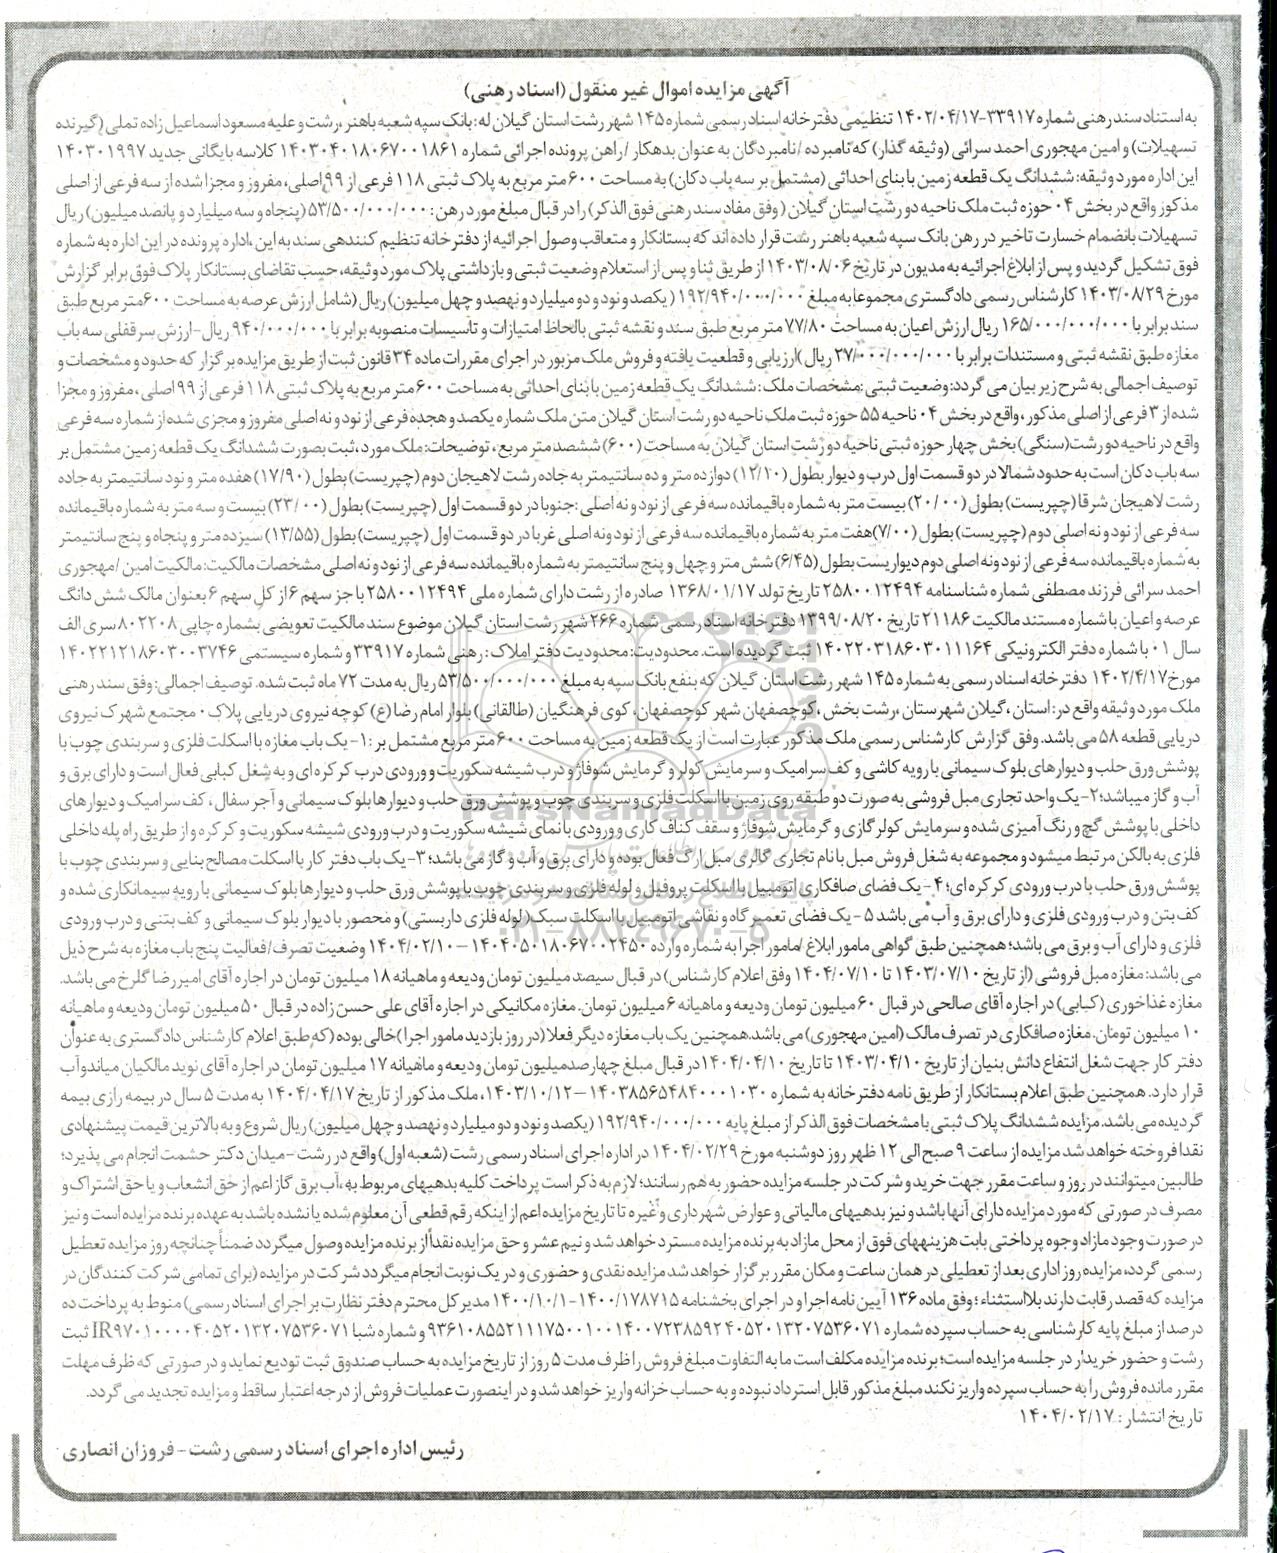 آگهی مزایده اموال غیر منقول (اسناد رهنی)
به استناد سند رهنی شماره ۳۳۹۱۷-۱۴۰۲/۰۴/۱۷ تنظیمی دفترخانه اسناد رسمی شماره ۱۴۵ شهر رشت استان گیلان له: بانک سپه شعبه باهنر ،رشت و علیه مسعود اسماعیل زاده تملی (گیرنده
تسهیلات) و امین مهجوری احمد سرائی (وثیقه گذار) که نامبرده /نامبردگان به عنوان بدهکار /راهن پرونده اجرائی شماره ۱۴۰۳۰۴۰۱۸۰۶۷۰۰۱۸۶۱ کلاسه بایگانی جدید ۱۴۰۳۰۱۹۹۷
این اداره مورد وثیقه: ششدانگ یک قطعه زمین با بنای احداثی (مشتمل بر سه باب دکان) به مساحت ۶۰۰ متر مربع به پلاک ثبتی ۱۱۸ فرعی از ۹۹ اصلی، مفروز و مجزا شده از سه فرعی از اصلی
مذکور واقع در بخش ۰۴ حوزه ثبت ملک ناحیه دو رشت استان گیلان (وفق مفاد سند رهنی فوق الذکر) را در قبال مبلغ مورد رهن: ۵۳/۵۰۰/۰۰۰/۰۰۰ (پنجاه و سه میلیارد و پانصد میلیون) ریال
تسهیلات بانضمام خسارت تاخیر در رهن بانک سپه شعبه باهنر رشت قرار داده اند که بستانکار و متعاقب وصول اجرائیه از دفترخانه تنظیم کنندهی سند به این ،اداره پرونده در این اداره به شماره
فوق تشکیل گردید و پس از ابلاغ اجرائیه به مدیون در تاریخ ۱۴۰۳/۰۸/۰۶ از طریق ثنا و پس از استعلام وضعیت ثبتی و بازداشتی پلاک مورد وثیقه، حسب تقاضای بستانکار پلاک فوق برابر گزارش
مورخ ۱۴۰۳/۰۸/۲۹ کارشناس رسمی دادگستری مجموعا به مبلغ ۱۹۲/۹۴۰/۰۰۰/۰۰۰ (یکصد و نود و دو میلیارد و نهصد و چهل میلیون) ریال (شامل ارزش عرصه به مساحت ۶۰۰ متر مربع طبق
سند برابر با ۱۶۵/۰۰۰/۰۰۰/۰۰۰ ریال ارزش اعیان به مساحت ۷۷/۸۰ متر مربع طبق سند و نقشه ثبتی بالحاظ امتیازات و تاسیسات منصوبه برابر با ۹۴۰/۰۰۰/۰۰۰ ریال-ارزش سرقفلی سه باب
مغازه طبق نقشه ثبتی و مستندات برابر با ۲۷/۰۰۰/۰۰۰/۰۰۰ ریال )ارزیابی و قطعیت یافته و فروش ملک مزبور در اجرای مقررات ماده ۳۴ قانون ثبت از طریق مزایده برگزار که حدود و مشخصات و
توصیف اجمالی به شرح زیر بیان می گردد: وضعیت ثبتی :مشخصات ملک: ششدانگ یک قطعه زمین با بنای احداثی به مساحت ۶۰۰ متر مربع به پلاک ثبتی ۱۱۸ فرعی از ۹۹ اصلی ،مفروز و مجزا
شده از ۳ فرعی از اصلی مذکور ،واقع در بخش ۰۴ ناحیه ۵۵ حوزه ثبت ملک ناحیه دو رشت استان گیلان متن ملک شماره یکصد و هجده فرعی از نود و نه اصلی مفروز و مجزی شده از شماره سه فرعی
واقع در ناحیه دو رشت (سنگی) بخش چهار حوزه ثبتی ناحیه دو رشت استان گیلان به مساحت (۶۰۰) ششصد متر مربع، توضیحات: ملک مورد، ثبت بصورت ششدانگ یک قطعه زمین مشتمل بر
سه باب دکان است به حدود شمالا در دو قسمت اول درب و دیوار بطول (۱۲/۱۰) دوازده متر و ده سانتیمتر به جاده رشت لاهیجان دوم (چپریست) بطول (۱۷/۹۰) هفده متر و نود سانتیمتر به جاده
رشت لاهیجان شرقا (چپریست) بطول (۲۰/۰۰) بیست متر به شماره باقیمانده سه فرعی از نود و نه اصلی :جنوبا در دو قسمت اول (چپریست) بطول (۲۳/۰۰) بیست و سه متر به شماره باقیمانده
سه فرعی از نود و نه اصلی دوم (چپریست) بطول (۷/۰۰) هفت متر به شماره باقیمانده سه فرعی از نود ونه اصلی غربا در دو قسمت اول (چپریست) بطول (۱۳/۵۵) سیزده متر و پنجاه و پنج سانتیمتر
به شماره باقیمانده سه فرعی از نود و نه اصلی دوم دیواریست بطول (۶/۴۵) شش متر و چهل و پنج سانتیمتر به شماره باقیمانده سه فرعی از نود و نه اصلی مشخصات مالکیت: مالکیت امین /مهجوری
احمد سرائی فرزند مصطفی شماره شناسنامه ۲۵۸۰۰۱۲۴۹۴ تاریخ تولد ۱۳۶۸/۰۱/۱۷ صادره از رشت دارای شماره ملی ۲۵۸۰۰۱۲۴۹۴ با جز سهم ۶ از کل سهم ۶ بعنوان مالک شش دانگ
عرصه و اعیان با شماره مستند مالکیت ۲۱۱۸۶ تاریخ ۱۳۹۹/۰۸/۲۰ دفترخانه اسناد رسمی شماره ۲۶۶ شهر رشت استان گیلان موضوع سند مالکیت تعویضی بشماره چاپی ۸۰۲۲۰۸ سری الف
سال ۰۱ با شماره دفتر الکترونیکی ۱۴۰۲۲۰۳۱۸۶۰۳۰۱۱۱۶۴ ثبت گردیده است. محدودیت: محدودیت دفتر املاک: رهنی شماره ۳۳۹۱۷ و شماره سیستمی ۱۴۰۲۲۱۲۱۸۶۰۳۰۰۳۷۴۶
مورخ ۱۴۰۲/۴/۱۷ دفترخانه اسناد رسمی به شماره ۱۴۵ شهر رشت استان گیلان که بنفع بانک سپه به مبلغ ۵۳/۵۰۰/۰۰۰/۰۰۰ ریال به مدت ۷۲ ماه ثبت شده. توصیف اجمالی: وفق سند رهنی
ملک مورد وثیقه واقع در: استان ،گیلان شهرستان ،رشت بخش، کوچصفهان شهر کوچصفهان، کوی فرهنگیان (طالقانی) بلوار امام رضا (ع) کوچه نیروی دریایی پلاک ۰ مجتمع شهرک نیروی
دریایی قطعه ۵۸ می باشد. وفق گزارش کارشناس رسمی ملک مذکور عبارت است از یک قطعه زمین به مساحت ۶۰۰ متر مربع مشتمل بر :۱- یک باب مغازه با اسکلت فلزی و سربندی چوب با
پوشش ورق حلب و دیوارهای بلوک سیمانی با رویه کاشی و کف سرامیک و سرمایش کولر و گرمایش شوفاژ و درب شیشه سکوریت و ورودی درب کرکره ای و به شغل کبابی فعال است و دارای برق و
آب و گاز میباشد؛ ۲- یک واحد تجاری مبل فروشی به صورت دو طبقه روی زمین با اسکلت فلزی و سربندی چوب و پوشش ورق حلب و دیوارها بلوک سیمانی و آجر سفال، کف سرامیک و دیوارهای
داخلی با پوشش گچ و رنگ آمیزی شده و سرمایش کولر گازی و گرمایش شوفاژ و سقف کناف کاری و ورودی با نمای شیشه سکوریت و درب ورودی شیشه سکوریت و کرکره و از طریق راه پله داخلی
فلزی به بالکن مرتبط میشود و مجموعه به شغل فروش مبل با نام تجاری گالری مبل ارک فعال بوده و دارای برق و آب و گاز می باشد؛ ۳- یک باب دفتر کار با اسکلت مصالح بنایی و سربندی چوب با
پوشش ورق حلب با درب ورودی کرکره ای؛ ۴- یک فضای صافکاری اتومبیل با اسکلت پروفیل و لوله فلزی و سربندی چوب با پوشش ورق حلب و دیوارها بلوک سیمانی با رویه سیمانکاری شده و
کف بتن و درب ورودی فلزی و دارای برق و آب می باشد ۵- یک فضای تعمیرگاه و نقاشی اتومبیل با اسکلت سبک (لوله فلزی داربستی) و محصور با دیوار بلوک سیمانی و کف بتنی و درب ورودی
فلزی و دارای آب و برق می باشد؛ همچنین طبق گواهی مامور ابلاغ /مامور اجرا به شماره وارده ۱۴۰۴۰۵۰۱۸۰۶۷۰۰۲۴۵۰ – ۱۴۰۴/۰۲/۱۰ وضعیت تصرف/فعالیت پنج باب مغازه به شرح ذیل
می باشد: مغازه مبل فروشی (از تاریخ ۱۴۰۳/۰۷/۱۰ تا ۱۴۰۴/۰۷/۱۰ وفق اعلام کارشناس) در قبال سیصد میلیون تومان ودیعه و ماهیانه ۱۸ میلیون تومان در اجاره آقای امیررضا گلرخ می باشد.
مغازه غذاخوری (کبابی) در اجاره آقای صالحی در قبال ۶۰ میلیون تومان ودیعه و ماهیانه ۶ میلیون تومان. مغازه مکانیکی در اجاره آقای علی حسن زاده در قبال ۵۰ میلیون تومان ودیعه و ماهیانه
۱۰ میلیون تومان. مغازه صافکاری در تصرف مالک (امین مهجوری) می باشد. همچنین یک باب مغازه دیگر فعلا (در روز بازدید مامور اجرا) خالی بوده (که طبق اعلام کارشناس دادگستری به عنوان
دفتر کار جهت شغل انتفاع دانش بنیان از تاریخ ۱۴۰۳/۰۴/۱۰ تا تاریخ ۱۴۰۴/۰۴/۱۰ در قبال مبلغ چهارصد میلیون تومان ودیعه و ماهیانه ۱۷ میلیون تومان در اجاره آقای نوید مالکیان میاندوآب
قرار دارد. همچنین طبق اعلام بستانکار از طریق نامه دفترخانه به شماره ۱۴۰۳۸۵۶۵۴۸۴۰۰۰۱۰۳۰ – ۱۴۰۳/۱۰/۱۲، ملک مذکور از تاریخ ۱۴۰۴/۰۴/۱۷ به مدت ۵ سال در بیمه رازی بیمه
گردیده می باشد. مزایده ششدانگ پلاک ثبتی با مشخصات فوق الذکر از مبلغ پایه ۱۹۲/۹۴۰/۰۰۰/۰۰۰ (یکصد و نود و دو میلیارد و نهصد و چهل میلیون) ریال شروع و به بالاترین قیمت پیشنهادی
نقدا فروخته خواهد شد مزایده از ساعت ۹ صبح الی ۱۲ ظهر روز دوشنبه مورخ ۱۴۰۴/۰۲/۲۹ در اداره اجرای اسناد رسمی رشت (شعبه اول) واقع در رشت -میدان دکتر حشمت انجام می پذیرد؛
طالبین میتوانند در روز و ساعت مقرر جهت خرید و شرکت در جلسه مزایده حضور به هم رسانند؛ لازم به ذکر است پرداخت کلیه بدهیهای مربوط به ،آب برق گاز اعم از حق انشعاب و یا حق اشتراک و
مصرف در صورتی که مورد مزایده دارای آنها باشد و نیز بدهیهای مالیاتی و عوارض شهرداری و غیره تا تاریخ مزایده اعم از اینکه رقم قطعی آن معلوم شده یا نشده باشد به عهده برنده مزایده است و نیز
در صورت وجود مازاد وجوه پرداختی بابت هزینههای فوق از محل مازاد به برنده مزایده مسترد خواهد شد و نیم عشر و حق مزایده نقدا از برنده مزایده وصول میگردد ضمناً چنانچه روز مزایده تعطیل
رسمی گردد، مزایده روز اداری بعد از تعطیلی در همان ساعت و مکان مقرر برگزار خواهد شد مزایده نقدی و حضوری و در یک نوبت انجام میگردد شرکت در مزایده (برای تمامی شرکت کنندگان در
مزایده که قصد رقابت دارند بلااستثناء؛ وفق ماده ۱۳۶ آیین نامه اجرا و در اجرای بخشنامه ۱۴۰۰/۱۷۸۷۱۵-۱۴۰۰/۱۰/۱ مدیر کل محترم دفتر نظارت بر اجرای اسناد رسمی) منوط به پرداخت ده
درصد از مبلغ پایه کارشناسی به حساب سپرده شماره ۴۰۵۲۰۱۳۲۰۷۵۳۶۰۷۱ و شماره شبا IR۹۷۰۱۰۰۰۰۴۰۵۲۰۱۳۲۰۷۵۳۶۰۷۱ ثبت
رشت و حضور خریدار در جلسه مزایده است؛ برنده مزایده مکلف است ما به التفاوت مبلغ فروش را ظرف مدت ۵ روز از تاریخ مزایده به حساب صندوق ثبت تودیع نماید و در صورتی که ظرف مهلت
مقرر مانده فروش را به حساب سپرده واریز نکند مبلغ مذکور قابل استرداد نبوده و به حساب خزانه واریز خواهد شد و در اینصورت عملیات فروش از درجه اعتبار ساقط و مزایده تجدید می گردد.
تاریخ انتشار: ۱۴۰۴/۰۲/۱۷
رئیس اداره اجرای اسناد رسمی رشت - فروزان انصاری
ParsNamadData
۰۲۱-۸۸۳۴۹۶۷۰-۵